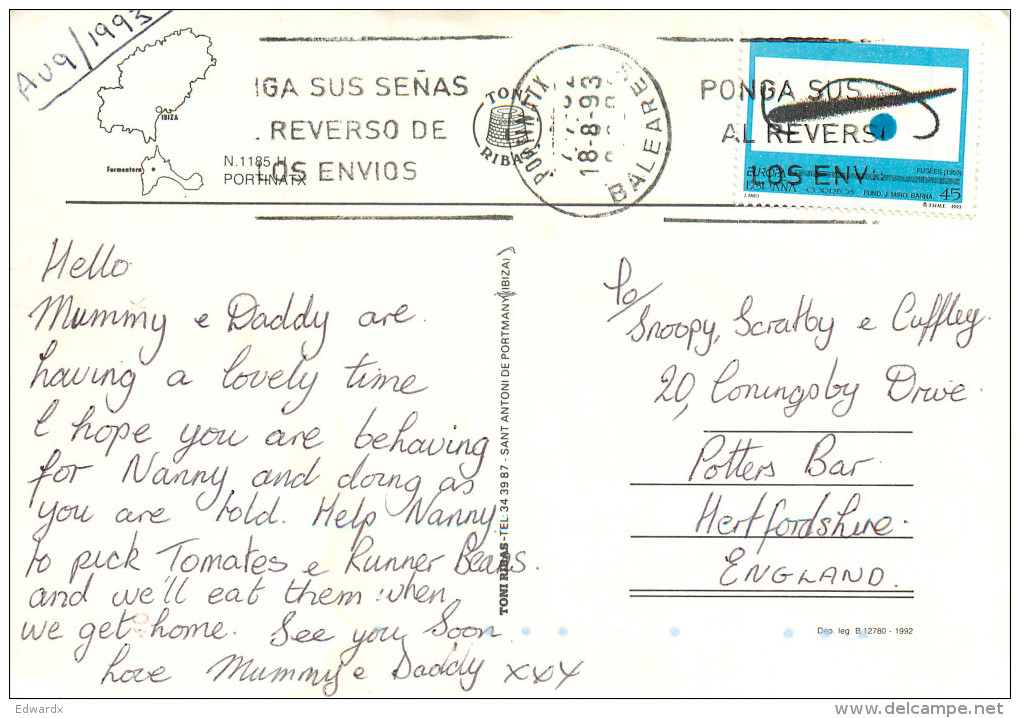 Aug/1993
IBIZA
Formentera
N.1185 H
PORTINATX
IGA SUS SEÑAS
REVERSO DE
LOS ENVIOS
TONI
RIBAS
PORTINATX
18-8-93
BALEARES
PONGA SUS S
AL REVERS
LOS ENV
FUSEES (1959)
EUROPA
ESPAÑA CORREOS FUND. J. MIRO. BARNA. 45
J. MIRO
F.N.M.T. 1993
Hello
Mummy e Daddy are
having a lovely time
I hope you are behaving
for Nanny and doing as
you are told. Help Nanny
to pick Tomates e Runner Beans.
and we'll eat them when
we get home. See you Soon
Love Mummy e Daddy xxx
TONI RIBAS - TEL. 34 39 87 - SANT ANTONI DE PORTMANY (IBIZA)
To/
Snoopy, Scratby e Cuffley.
20, Coningsby Drive.
Potters Bar.
Hertfordshire.
ENGLAND.
Dep. leg. B 12780 - 1992
Edwardx
www.delcampe.net